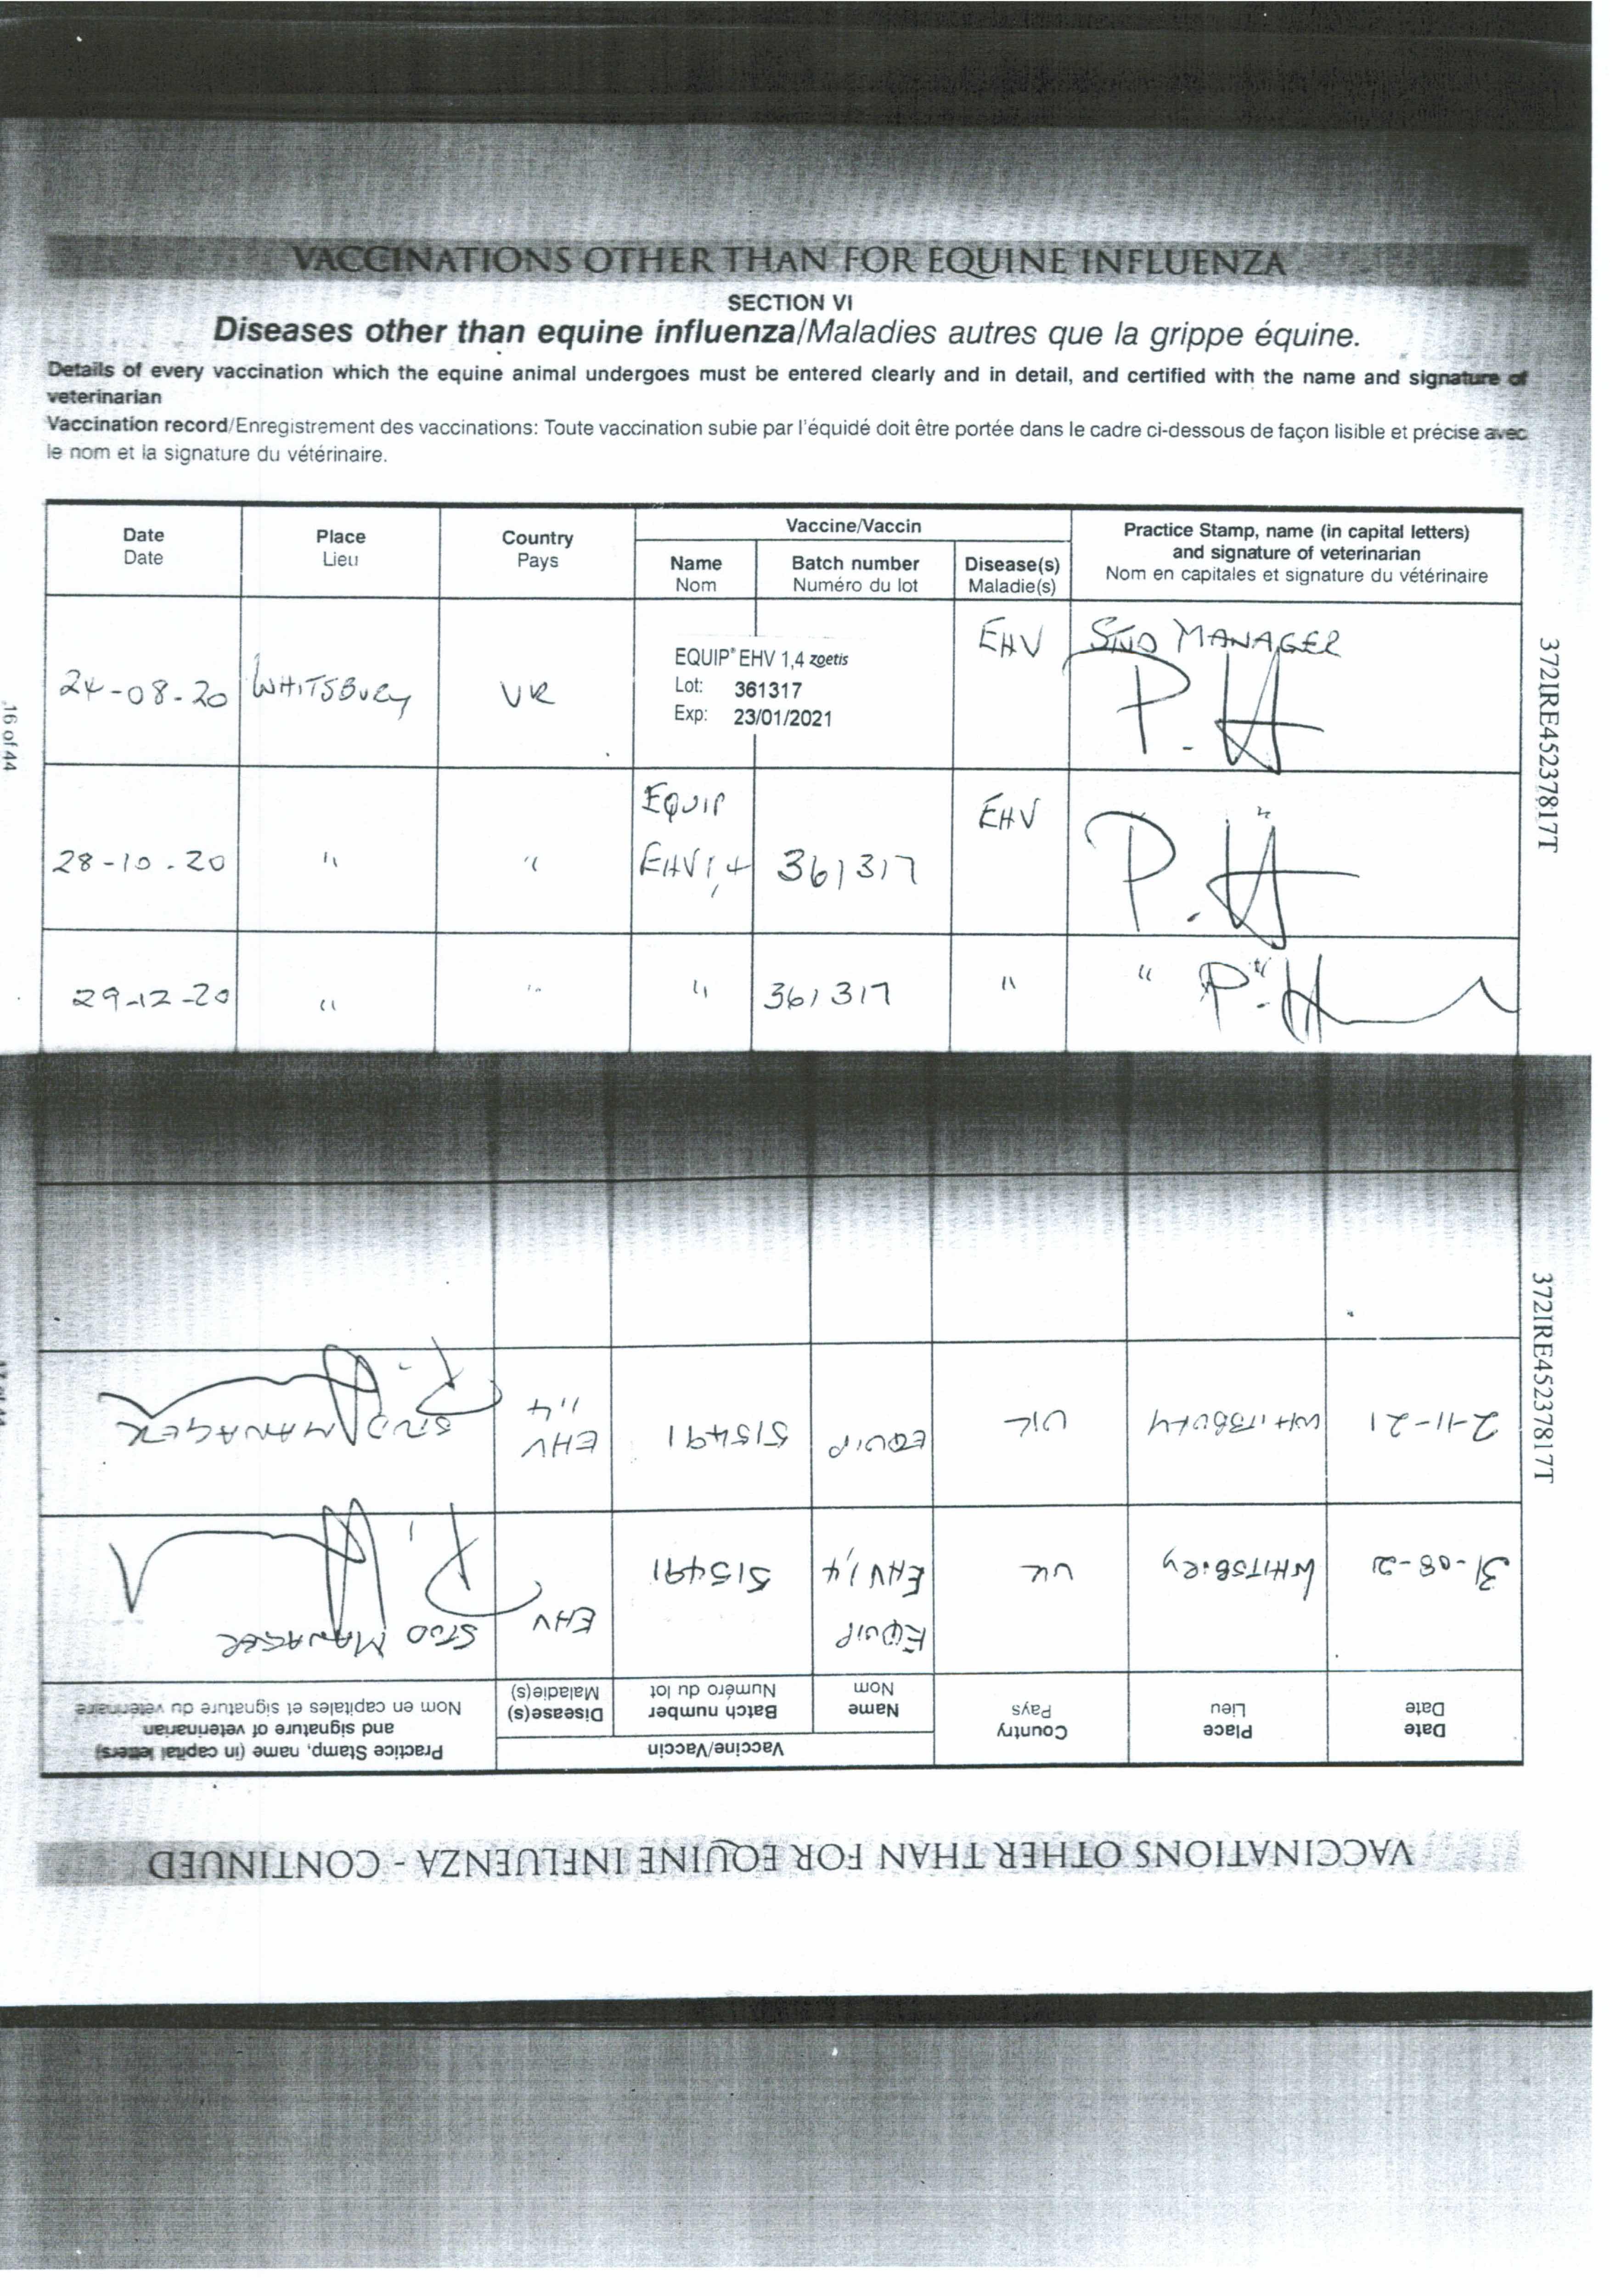 VACCINATIONS OTHER THAN FOR EQUINE INFLUENZA
SECTION VI
Diseases other than equine influenza/Maladies autres que la grippe équine.
Details of every vaccination which the equine animal undergoes must be entered clearly and in detail, and certified with the name and signature of
veterinarian
Vaccination record/Enregistrement des vaccinations: Toute vaccination subie par l'équidé doit être portée dans le cadre ci-dessous de façon lisible et précise avec
le nom et la signature du vétérinaire.
Date
Date
Place
Lieu
Country
Pays
Vaccine/Vaccin
Name
Nom
Batch number
Numéro du lot
Disease(s)
Maladie(s)
Practice Stamp, name (in capital letters)
and signature of veterinarian
Nom en capitales et signature du vétérinaire
24-08-20
WHITSBURY
UK
EQUIP® EHV 1,4 zoetis
Lot: 361317
Exp: 23/01/2021
EHV
STUD MANAGER
P. H
28-10-20
"
"
EQUIP
EHV 1,4
361317
EHV
"
P. H
29-12-20
"
"
"
361317
"
" "
P. H
16 of 44
372IRE45237817T
VACCINATIONS OTHER THAN FOR EQUINE INFLUENZA - CONTINUED
Date
Date
Place
Lieu
Country
Pays
Vaccine/Vaccin
Name
Nom
Batch number
Numéro du lot
Disease(s)
Maladie(s)
Practice Stamp, name (in capital letters)
and signature of veterinarian
Nom en capitales et signature du vétérinaire
31-08-21
WHITSBURY
UK
EQUIP
EHV 1,4
515491
EHV
STUD MANAGER
2-11-21
WHITSBURY
UK
EQUIP
515491
EHV
1,4
STUD MANAGER
372IRE45237817T